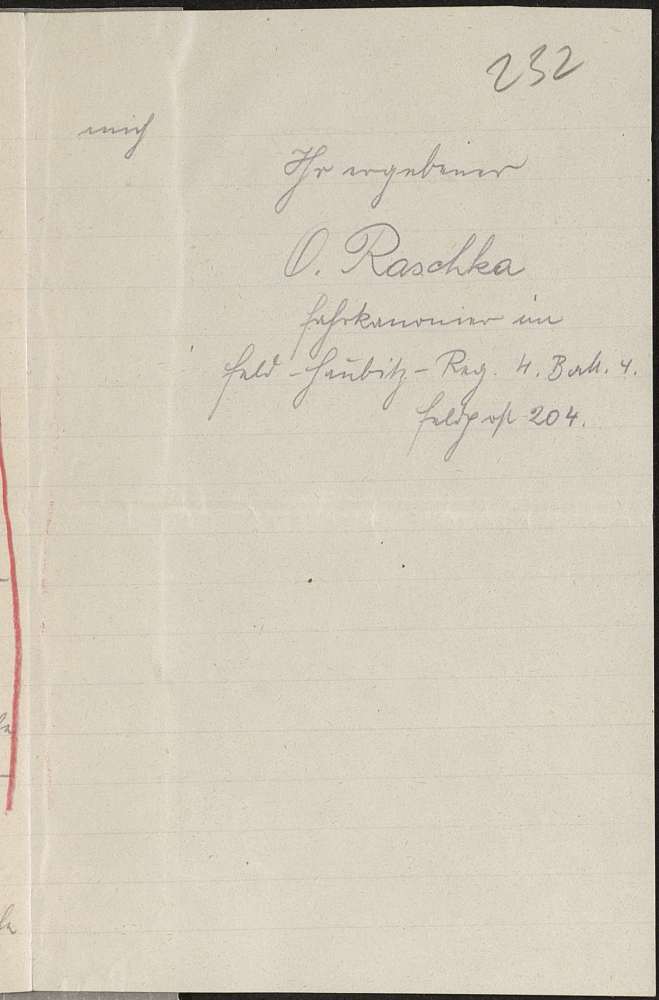 232
mich
Ihr ergebener
O. Raschka
Fahrkanonier im
Feld-Haubitz-Reg. 4. Batt. 4.
Feldpost 204.